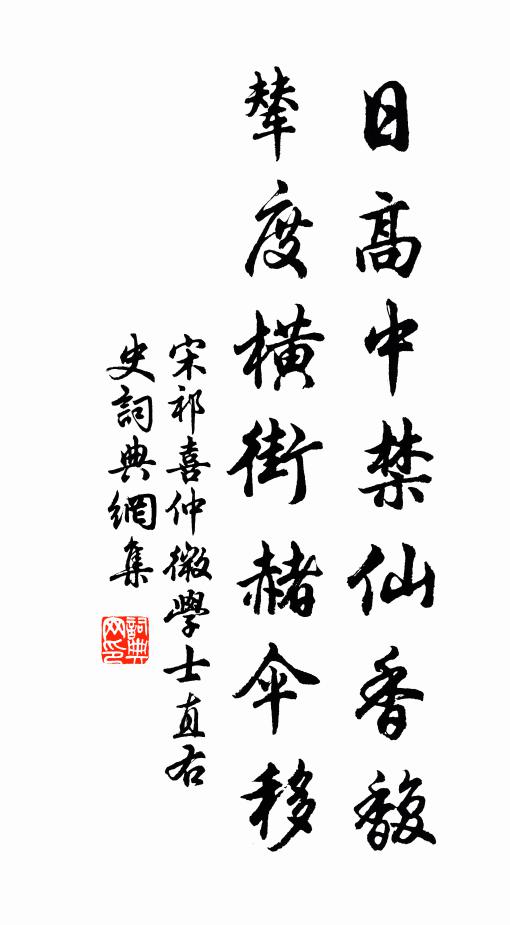 日高中禁仙香馥
輦度橫街赭伞移
宋祁喜仲微學士直右
史詞典網集
詞典网印